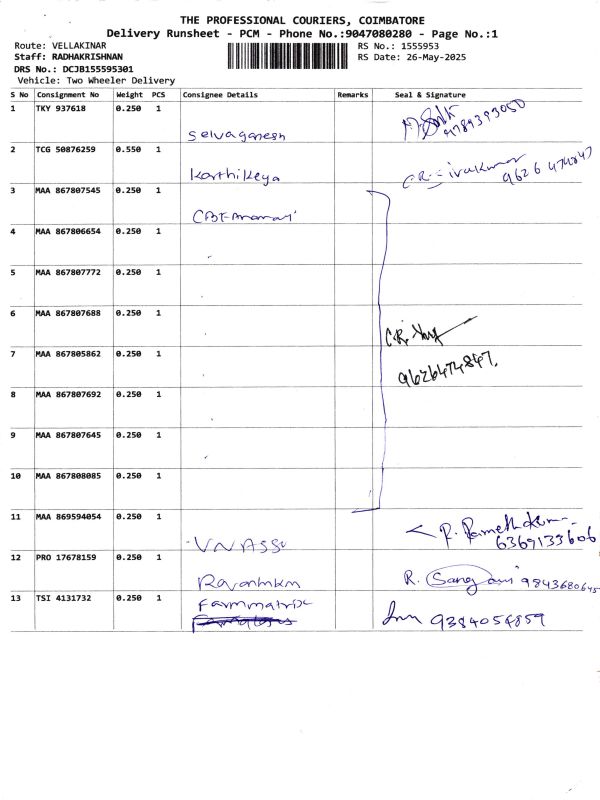 THE PROFESSIONAL COURIERS, COIMBATORE
Delivery Runsheet - PCM - Phone No.:9047080280 - Page No.:1
Route: VELLAKINAR
RS No.: 1555953
Staff: RADHAKRISHNAN
RS Date: 26-May-2025
DRS No.: DCJB155595301
Vehicle: Two Wheeler Delivery
S No Consignment No Weight PCS Consignee Details Remarks Seal & Signature
1 TKY 937618 0.250 1
Selvaganesh
9789393050
2 TCG 50876259 0.550 1
Karthikeya
CR. Sivakumar
9626474847
3 MAA 867807545 0.250 1
4 MAA 867806654 0.250 1
5 MAA 867807772 0.250 1
6 MAA 867807688 0.250 1
7 MAA 867805862 0.250 1
9626474847.
8 MAA 867807692 0.250 1
9 MAA 867807645 0.250 1
10 MAA 867808085 0.250 1
11 MAA 869594054 0.250 1
6369133606
12 PRO 17678159 0.250 1
R. 9843680645
13 TSI 4131732 0.250 1
Farmmatrix
9384054859